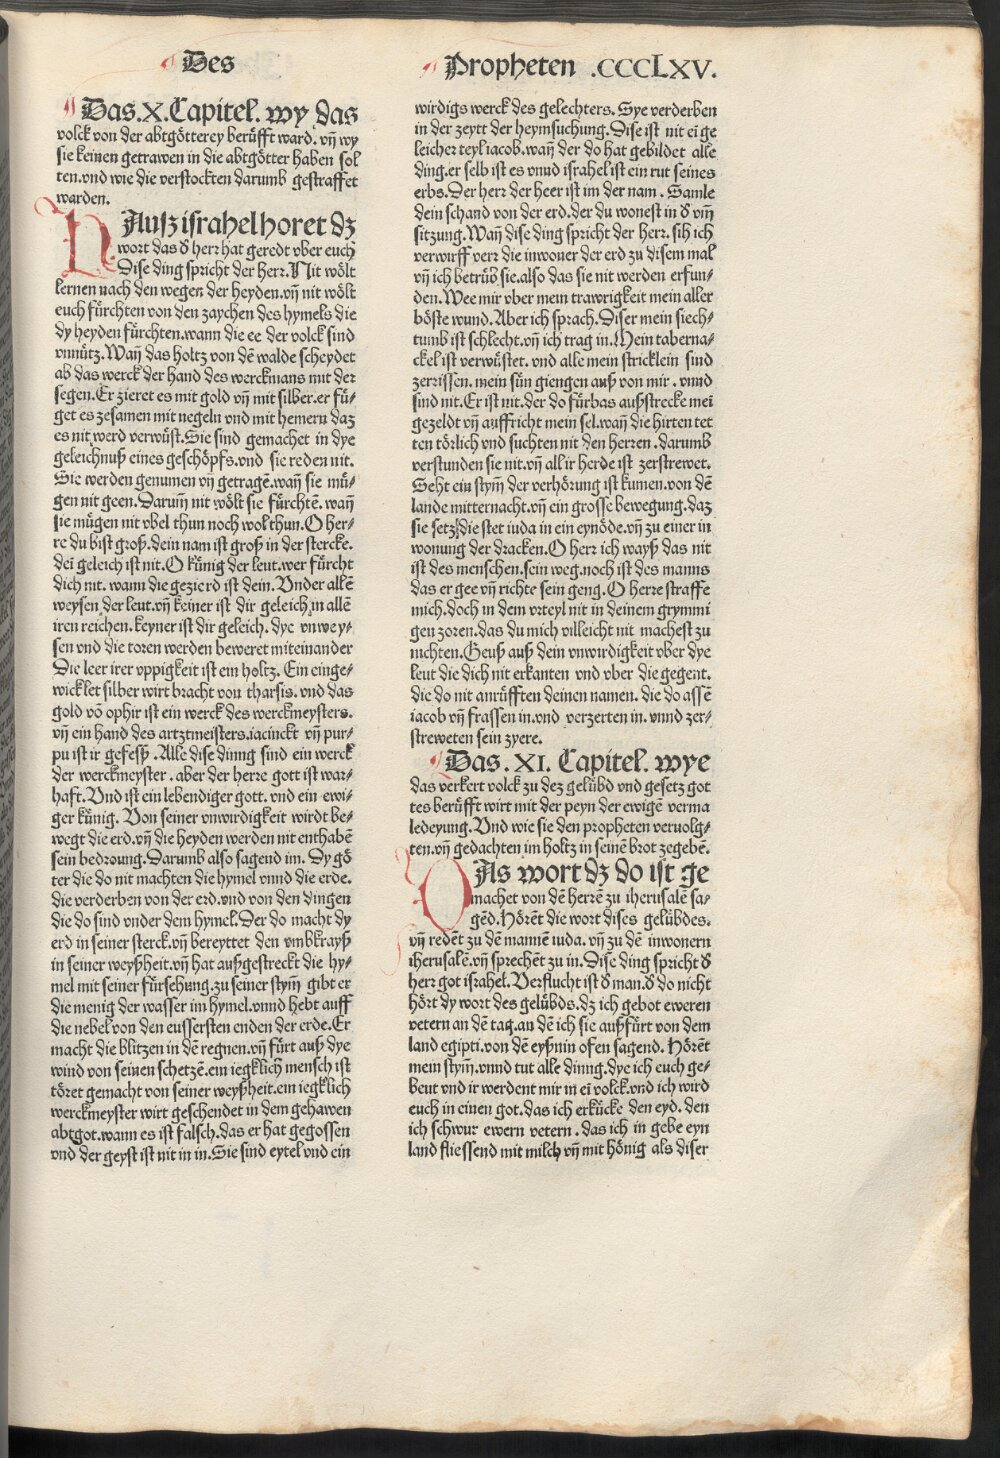 Des
Propheten .CCCLXV.
Das.X.Capitel. wy das
volck von der abtgötterey berüfft ward. vn̄ wy
sie keinen getrawen in die abtgötter haben sol
ten.vnd wie die verstockten darumb gestraffet
warden.
HAusz israhel horet dz
wort das d herr hat geredt vber euch
Dise ding spricht der herr.Nit wölt
lernen nach den wegen der heyden.vn̄ nit wölt
euch fürchten von den zaychen des hymels die
dy heyden fürchten.wann die ee der volck sind
vnnütz.Wan̄ das holtz von dē walde scheydet
ab das werck der hand des werckmans mit der
segen.Er zieret es mit gold vn̄ mit silber.er fü⸗
get es zesamen mit negeln vnd mit hemern daz
es nit werd verwüst.Sie sind gemachet in dye
geleichnuß eines geschöpfs.vnd sie reden nit.
Sie werden genumen vn̄ getragē.wan̄ sie mü⸗
gen nit geen.Darum̄ nit wölt sie fürchtē. wan̄
sie mügen nit vbel thun noch wol thun.O her⸗
re du bist groß.dein nam ist groß in der stercke.
deī geleich ist nit.O künig der leut.wer fürcht
dich nit. wann die gezierd ist dein.Vnder allē
weysen der leut.vn̄ keiner ist dir geleich in allē
iren reichen.keyner ist dir geleich. dye vnwey⸗
sen vnd die toren werden beweret miteinander
Die leer irer vppigkeit ist ein holtz. Ein einge⸗
wicklet silber wirt bracht von tharsis. vnd das
gold vō ophir ist ein werck des werckmeysters.
vn̄ ein hand des artztmeisters.iacinckt vn̄ pur⸗
pu ist ir gefeß .Alle dise dinng sind ein werck
der werckmeyster . aber der herre gott ist war⸗
haft.Vnd ist ein lebendiger gott. vnd ein ewi⸗
ger künig. Von seiner vnwirdigkeit wirdt be⸗
wegt die erd.vn̄ die heyden werden nit enthabē
sein bedroung.Darumb also sagend im. Dy gö
ter die do nit machten die hymel vnnd die erde.
die verderben von der erd.vnd von den dingen
die do sind vnder dem hymel.Der do macht dy
erd in seiner sterck.vn̄ bereyttet den vmbkrayß
in seiner weyßheit.vn̄ hat außgestreckt die hy⸗
mel mit seiner fürsehung.zu seiner stym̄ gibt er
die menig der wasser im hymel.vnnd hebt auff
die nebel von den eussersten enden der erde.Er
macht die blitzen in dē regnen.vn̄ fürt auß dye
wind von seinen schetzē.ein iegklich mensch ist
töret gemacht von seiner weyßheit.ein iegklich
werckmeyster wirt geschendet in dem gehawen
abtgot.wann es ist falsch.das er hat gegossen
vnd der geyst ist nit in in.Sie sind eytel vnd ein
wirdigs werck des gelechters. Sye verderben
in der zeytt der heymsuchung.Dise ist nit eī ge
leicher teyl iacob.wan̄ der do hat gebildet alle
ding.er selb ist es vnnd israhel ist ein rut seines
erbs.Der herr der heer ist im der nam . Samle
dein schand von der erd.der du wonest in d vm̄
sitzung.Wan̄ dise ding spricht der herr. sih ich
verwirff verr die inwoner der erd zu disem mal
vn̄ ich betrüb sie.also das sie nit werden erfun⸗
den.Wee mir vber mein trawrigkeit mein aller
böste wund.Aber ich sprach.Diser mein siech⸗
tumb ist schlecht.vn̄ ich trag in.Mein taberna⸗
ckel ist verwüstet. vnd alle mein stricklein sind
zerrissen. mein sün giengen auß von mir . vnnd
sind nit.Er ist nit.der do fürbas außstrecke meī
gezeldt vn̄ auffricht mein fel.wan̄ die hirten tet
ten törlich vnd suchten nit den herren .darumb
verstunden sie nit.vn̄ all ir herde ist zerstrewet.
Seht ein stym̄ der verhörung ist kumen.von dē
lande mitternacht.vn̄ ein grosse bewegung.daz
sie setz die stet iuda in ein eynöde.vn̄ zu einer in
wonung der dracken.O herr ich wayß das nit
ist des menschen.sein weg.noch ist des manns
das er gee vn̄ richte sein geng.O herre straffe
mich.doch in dem vrteyl nit in deinem grymmi
gen zoren.das du mich villeicht nit machest zu
nichten.Geuß auß dein vnwirdigkeit vber dye
leut die dich nit erkanten vnd vber die gegent.
die do nit anrüfften deinen namen. die do assē
iacob vn̄ frassen in.vnd verzerten in. vnnd zer⸗
streweten sein zyere.
Das. XI. Capitel. wye
das verkert volck zu dez gelübd vnd gesetz got
tes berüfft wirt mit der peyn der ewigē verma
ledeyung.Vnd wie sie den propheten veruolg⸗
ten.vn̄ gedachten im holtz in seinē brot zegebē.
DAs wort dz do ist ge
machet von dē herrē zu iherusalē sa⸗
gēd.Hörēt die wort dises gelübdes.
vn̄ redēt zu dē mannē iuda. vn̄ zu dē inwonern
iherusalē.vn̄ sprechēt zu in.Dise ding spricht d
herr got israhel.Verflucht ist d man.d do nicht
hört dy wort des gelübds.dz ich gebot eweren
vetern an dē tag.an dē ich sie außfürt von dem
land egipti.von dē eyßnin ofen sagend. Hörēt
mein stym̄.vnnd tut alle dinng.dye ich euch ge⸗
beut vnd ir werdent mir in eī volck.vnd ich wird
euch in einen got.das ich erkücke den eyd. den
ich schwur ewern vetern .das ich in gebe eyn
land fliessend mit milch vn̄ mit hönig als diser